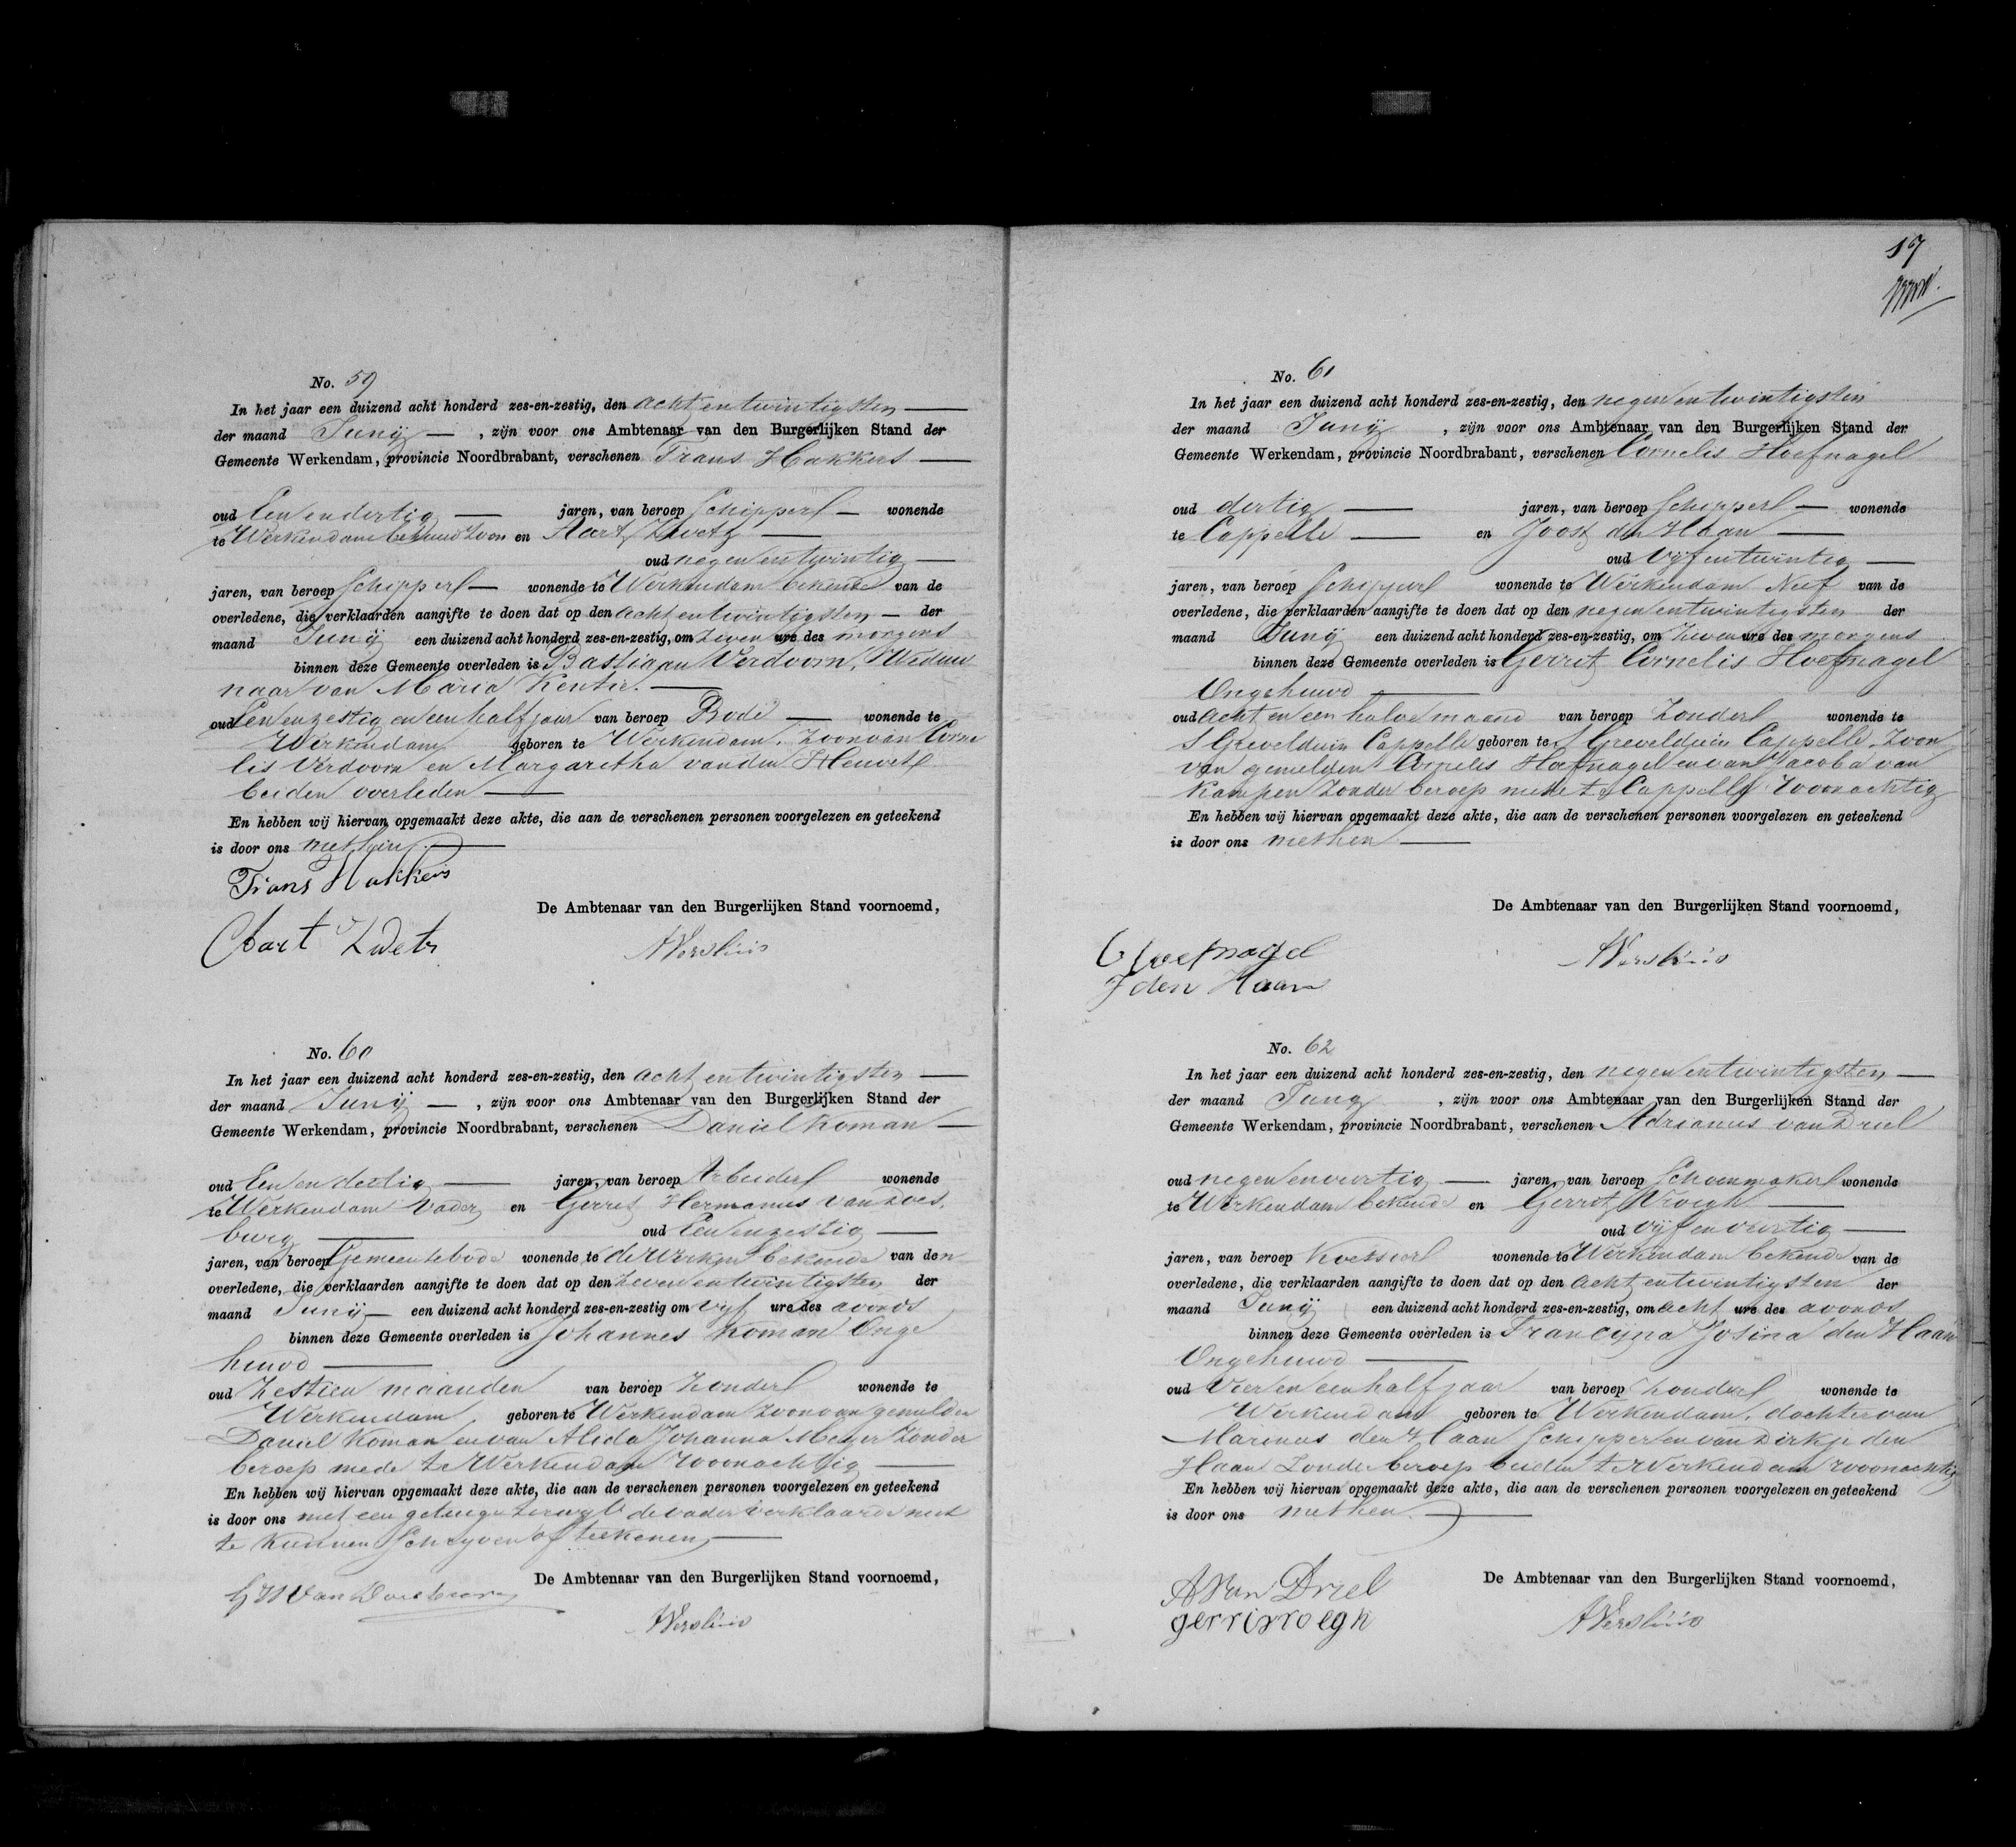 No. 59
In het jaar een duizend acht honderd zes-en-zestig, den achtentwintigsten
der maand Junij, zijn voor ons Ambtenaar van den Burgerlijken Stand der
Gemeente Werkendam, provincie Noordbrabant, verschenen Frans Hakkers
oud Eenendertig jaren, van beroep Schipper wonende
te Werkendam behuwdzoon en Aart Zwets
oud negenentwintig
jaren, van beroep Schipper wonende te Werkendam bekende van de
overledene, die verklaarden aangifte te doen dat op den achtentwintigsten der
maand Junij een duizend acht honderd zes-en-zestig, om zeven ure des morgens
binnen deze Gemeente overleden is Bastiaan Verdoorn, Weduw
naar van Maria Kentie.
oud Eenenzestig en een half jaar van beroep Bode wonende te
Werkendam geboren te Werkendam, Zoon van Corne
lis Verdoorn en Margaretha van den Heuvel
beiden overleden
En hebben wij hiervan opgemaakt deze akte, die aan de verschenen personen voorgelezen en geteekend
is door ons met hen
Frans Hakkers
De Ambtenaar van den Burgerlijken Stand voornoemd,
Aart Zwets
AVersluis
No. 60
In het jaar een duizend acht honderd zes-en-zestig, den achtentwintigsten
der maand Junij, zijn voor ons Ambtenaar van den Burgerlijken Stand der
Gemeente Werkendam, provincie Noordbrabant, verschenen Daniel Koman
oud Eenendertig jaren, van beroep Arbeider wonende
te Werkendam Vader en Gerret Hermanus van Does
burg oud Eenenzestig
jaren, van beroep Gemeentebode wonende te de Werken bekende van den
overledene, die verklaarden aangifte te doen dat op den zevenentwintigsten der
maand Junij een duizend acht honderd zes-en-zestig om vijf ure des avonds
binnen deze Gemeente overleden is Johannes Koman Onge
huwd
oud Zestien maanden van beroep Zonder wonende te
Werkendam, geboren te Werkendam zoon van gemelden
Daniel Koman en van Alida Johanna Meijer Zonder
beroep mede te Werkendam Woonachtig
En hebben wij hiervan opgemaakt deze akte, die aan de verschenen personen voorgelezen en geteekend
is door ons met een getuige terwijl de vader verklaarde niet
te kunnen Schrijven of teekenen
De Ambtenaar van den Burgerlijken Stand voornoemd,
GHVan Doesburg
AVersluis
17
No. 61
In het jaar een duizend acht honderd zes-en-zestig, den negenentwintigsten
der maand Junij, zijn voor ons Ambtenaar van den Burgerlijken Stand der
Gemeente Werkendam, provincie Noordbrabant, verschenen Cornelis Hoefnagel
oud dertig jaren, van beroep Schipper wonende
te Cappelle en Joost den Haan
oud Vijfentwintig
jaren, van beroep Schipper wonende te Werkendam Neef van de
overledene, die verklaarden aangifte te doen dat op den negenentwintigsten der
maand Junij een duizend acht honderd zes-en-zestig, om zeven ure des morgens
binnen deze Gemeente overleden is Gerrit Cornelis Hoefnagel
Ongehuwd
oud acht en een halve maand van beroep Zonder wonende te
S Grevelduin Cappelle geboren te S Grevelduin Cappelle, Zoon
van gemelden Cornelis Hoefnagel en van Jacoba van
Kampen Zonder beroep mede te Cappelle Woonachtig
En hebben wij hiervan opgemaakt deze akte, die aan de verschenen personen voorgelezen en geteekend
is door ons met hen
De Ambtenaar van den Burgerlijken Stand voornoemd,
C Hoefnagel
J den Haan
AVersluis
No. 62
In het jaar een duizend acht honderd zes-en-zestig, den negenentwintigsten
der maand Junij, zijn voor ons Ambtenaar van den Burgerlijken Stand der
Gemeente Werkendam, provincie Noordbrabant, verschenen Adrianus van Driel
oud negenenveertig jaren, van beroep Schoenmaker wonende
te Werkendam bekende en Gerrit Vroegh
oud vijfenveertig
jaren, van beroep wonende te Werkendam bekende van de
overledene, die verklaarden aangifte te doen dat op den achtentwintigsten der
maand Junij een duizend acht honderd zes-en-zestig, om acht ure des avonds
binnen deze Gemeente overleden is Francijna Josina den Haan
Ongehuwd
oud Vier en een half jaar van beroep zonder wonende te
Werkendam geboren te Werkendam, dochter van
Marinus den Haan Schipper en van Dirkje den
Haan Zonder beroep beiden te Werkendam woonachtig
En hebben wij hiervan opgemaakt deze akte, die aan de verschenen personen voorgelezen en geteekend
is door ons met hen.
De Ambtenaar van den Burgerlijken Stand voornoemd,
AVan Driel
gerrit vroegh
AVersluis